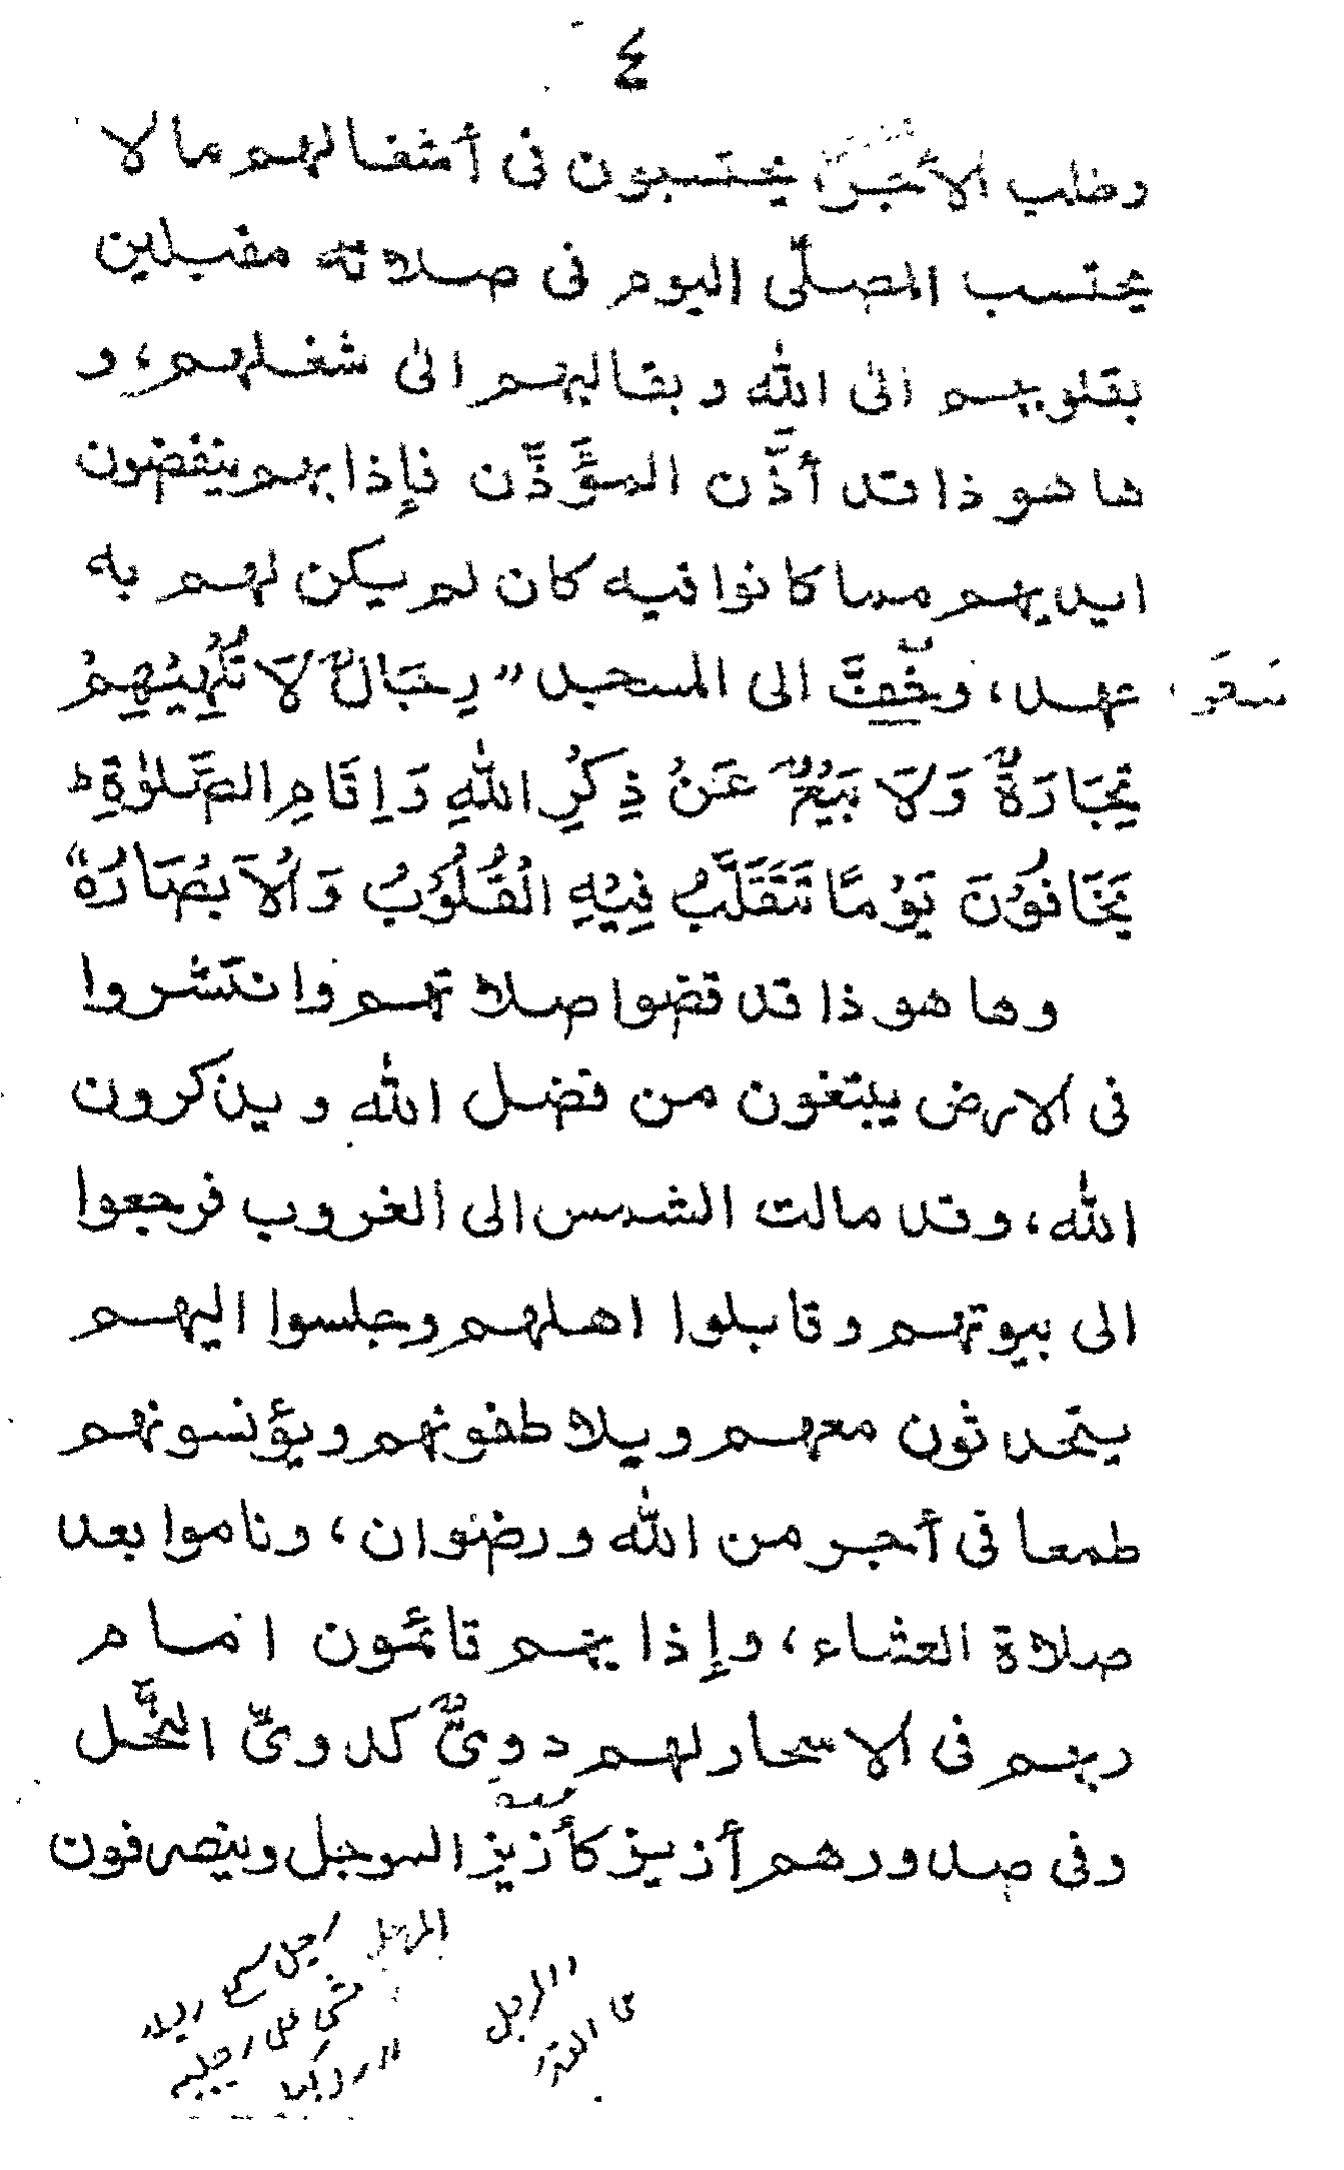 ٤
وطلب الأجر يحتسبون فى أشغالهم مالا
يحتسب المصلّى اليوم فى صلاته مقبلين
بقلوبهم الى الله وبقالبهم الى شغلهم، و
ها هو ذا قد أذّن المؤذّن فإذا بهم ينفضون
ايديهم مما كانوا فيه كان لم يكن لهم به
عهد، وخَفَّ الى المسجد "رِجَالٌ لَا تُلْهِيْهِمْ
تِجَارَةٌ وَلَا بَيْعٌ عَنْ ذِكْرِ اللهِ وَاِقَامِ الصَّلوٰةِ
يَخَافُوْنَ يَوْمًا تَتَقَلَّبُ فِيْهِ الْقُلُوْبُ وَالْاَبْصَارُه"
وها هو ذا قد قضوا صلاتهم وانتشروا
فى الارض يبتغون من فضل الله ويذكرون
الله، وقد مالت الشمس الى الغروب فرجعوا
الى بيوتهم وقابلوا اهلهم وجلسوا اليهم
يتحدثون معهم ويلاطفونهم ويؤنسونهم
طمعا فى أجر من الله ورضوان، وناموا بعد
صلاة العشاء، وإذا بهم قائمون امام
ربهم فى الاسحار لهم دوىٌّ كدوىّ النَّحل
وفى صدورهم أزيز كأزيز المرجل وينصرفون
المرجل